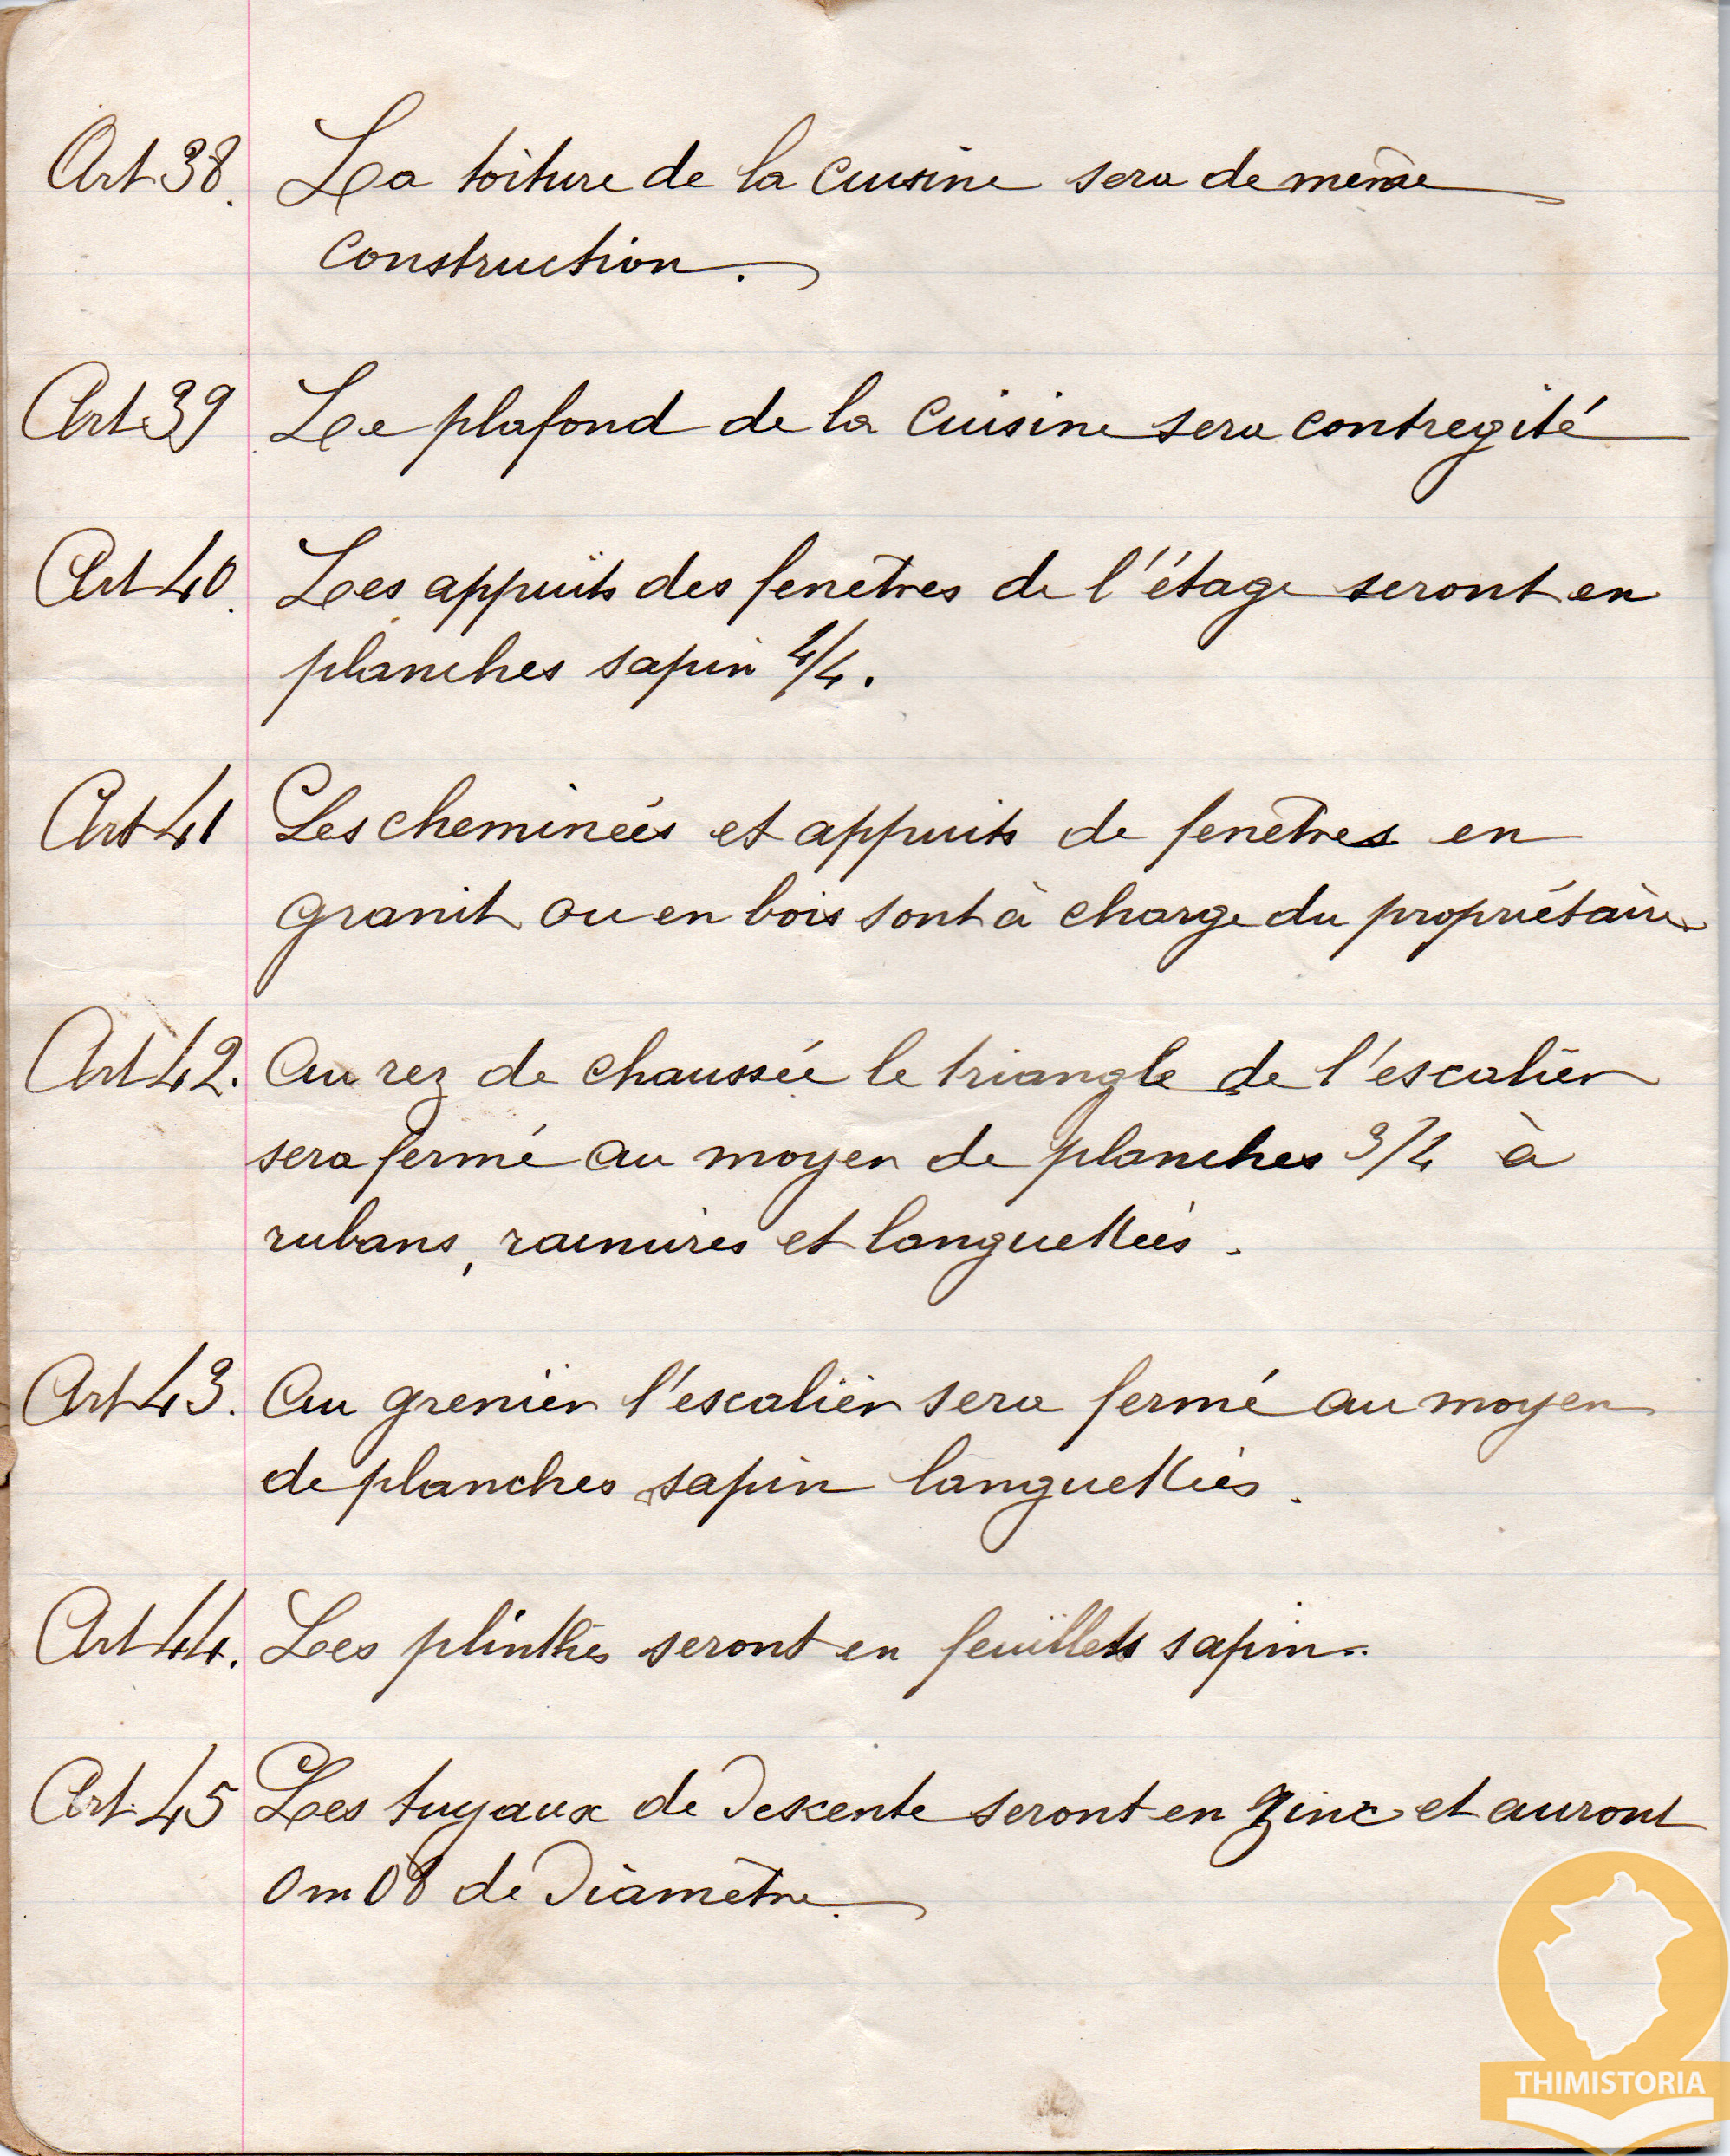 Art 38. La toiture de la cuisine sera de même
construction.
Art 39 Le plafond de la cuisine sera contregité
Art 40. Les appuits des fenêtres de l'étage seront en
planches sapin 4/4.
Art 41 Les cheminées et appuits de fenêtres en
granit ou en bois sont à charge du propriétaire
Art 42. Au rez de chaussée le triangle de l'escalier
sera fermé au moyen de planches 3/4 à
rubans, rainures et languettées.
Art 43. Au grenier l'escalier sera fermé au moyen
de planches sapin languettées.
Art 44. Les plinthes seront en feuillets sapin.
Art 45 Les tuyaux de descente seront en zinc et auront
0m08 de diamètre.
THIMISTORIA